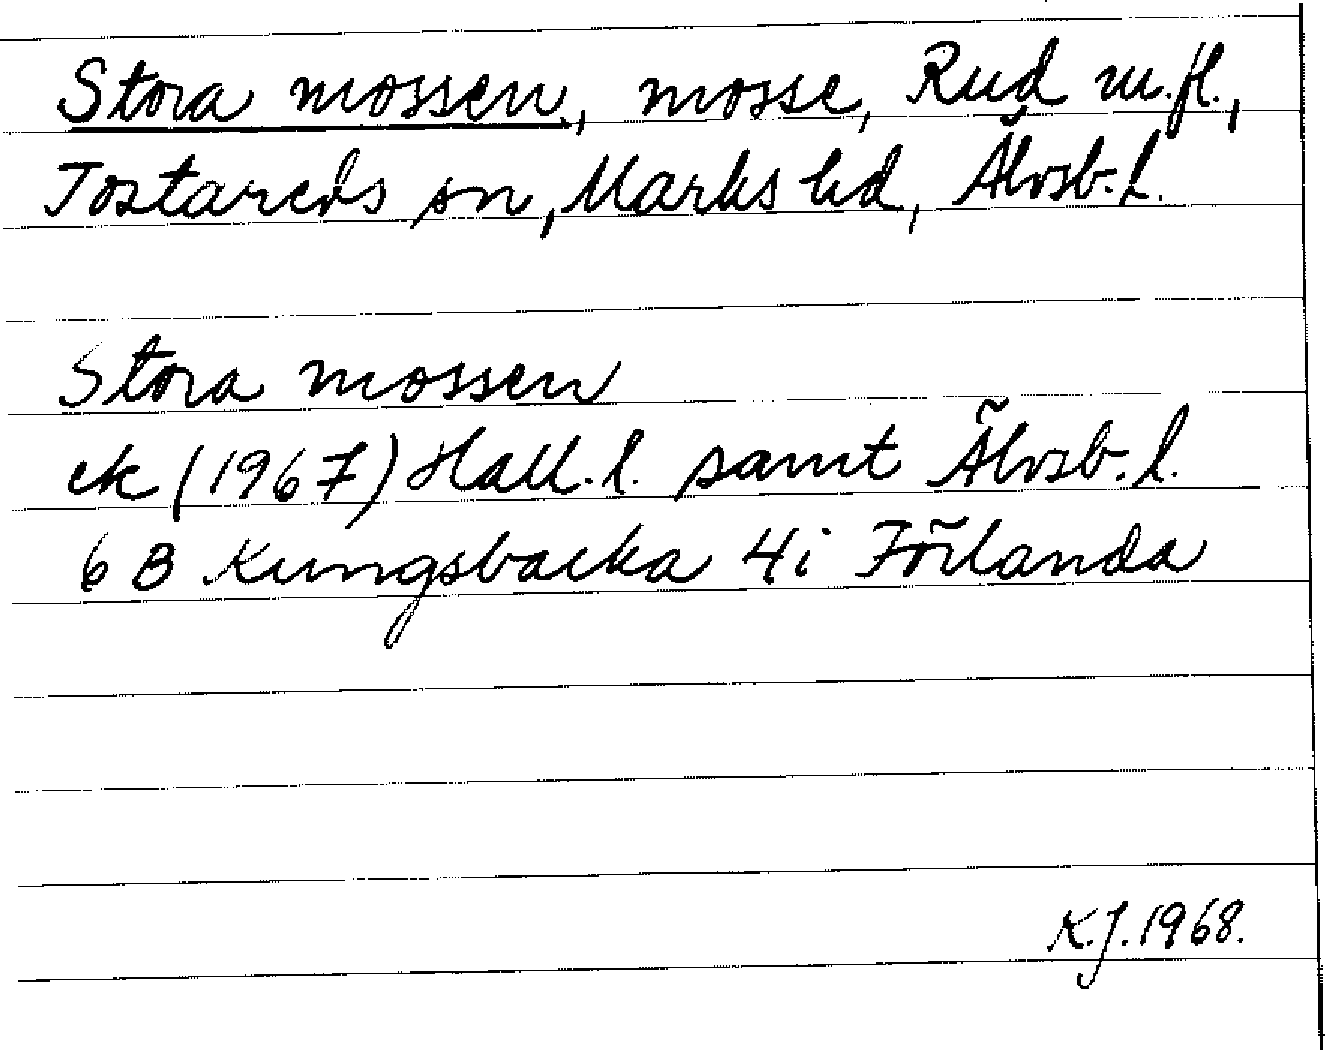 Stora mossen, mosse, Rud m.fl.,
Tostareds sn, Marks hd, Älvsb. l.
Stora mossen
ek (1967) Hall. l. samt Älvsb. l.
6 B Kungsbacka 4i Förlanda
K.J. 1968.